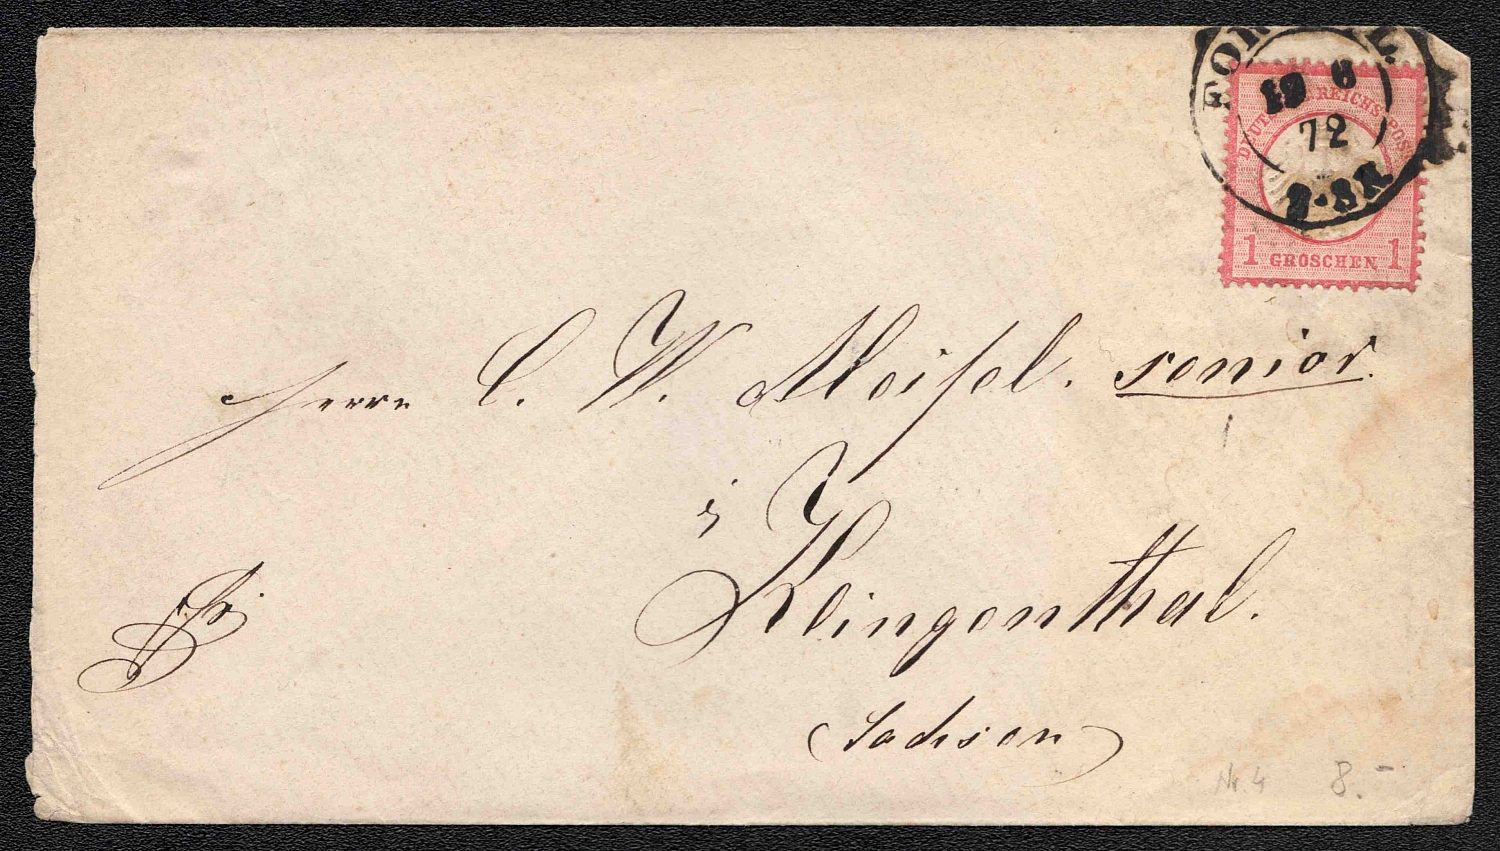 19 6
72
DEUTSCHE REICHS-POST
1 GROSCHEN 1
Herrn C. W. Meisel. senior.
Klingenthal.
(Sachsen)
Nr. 4 8.-